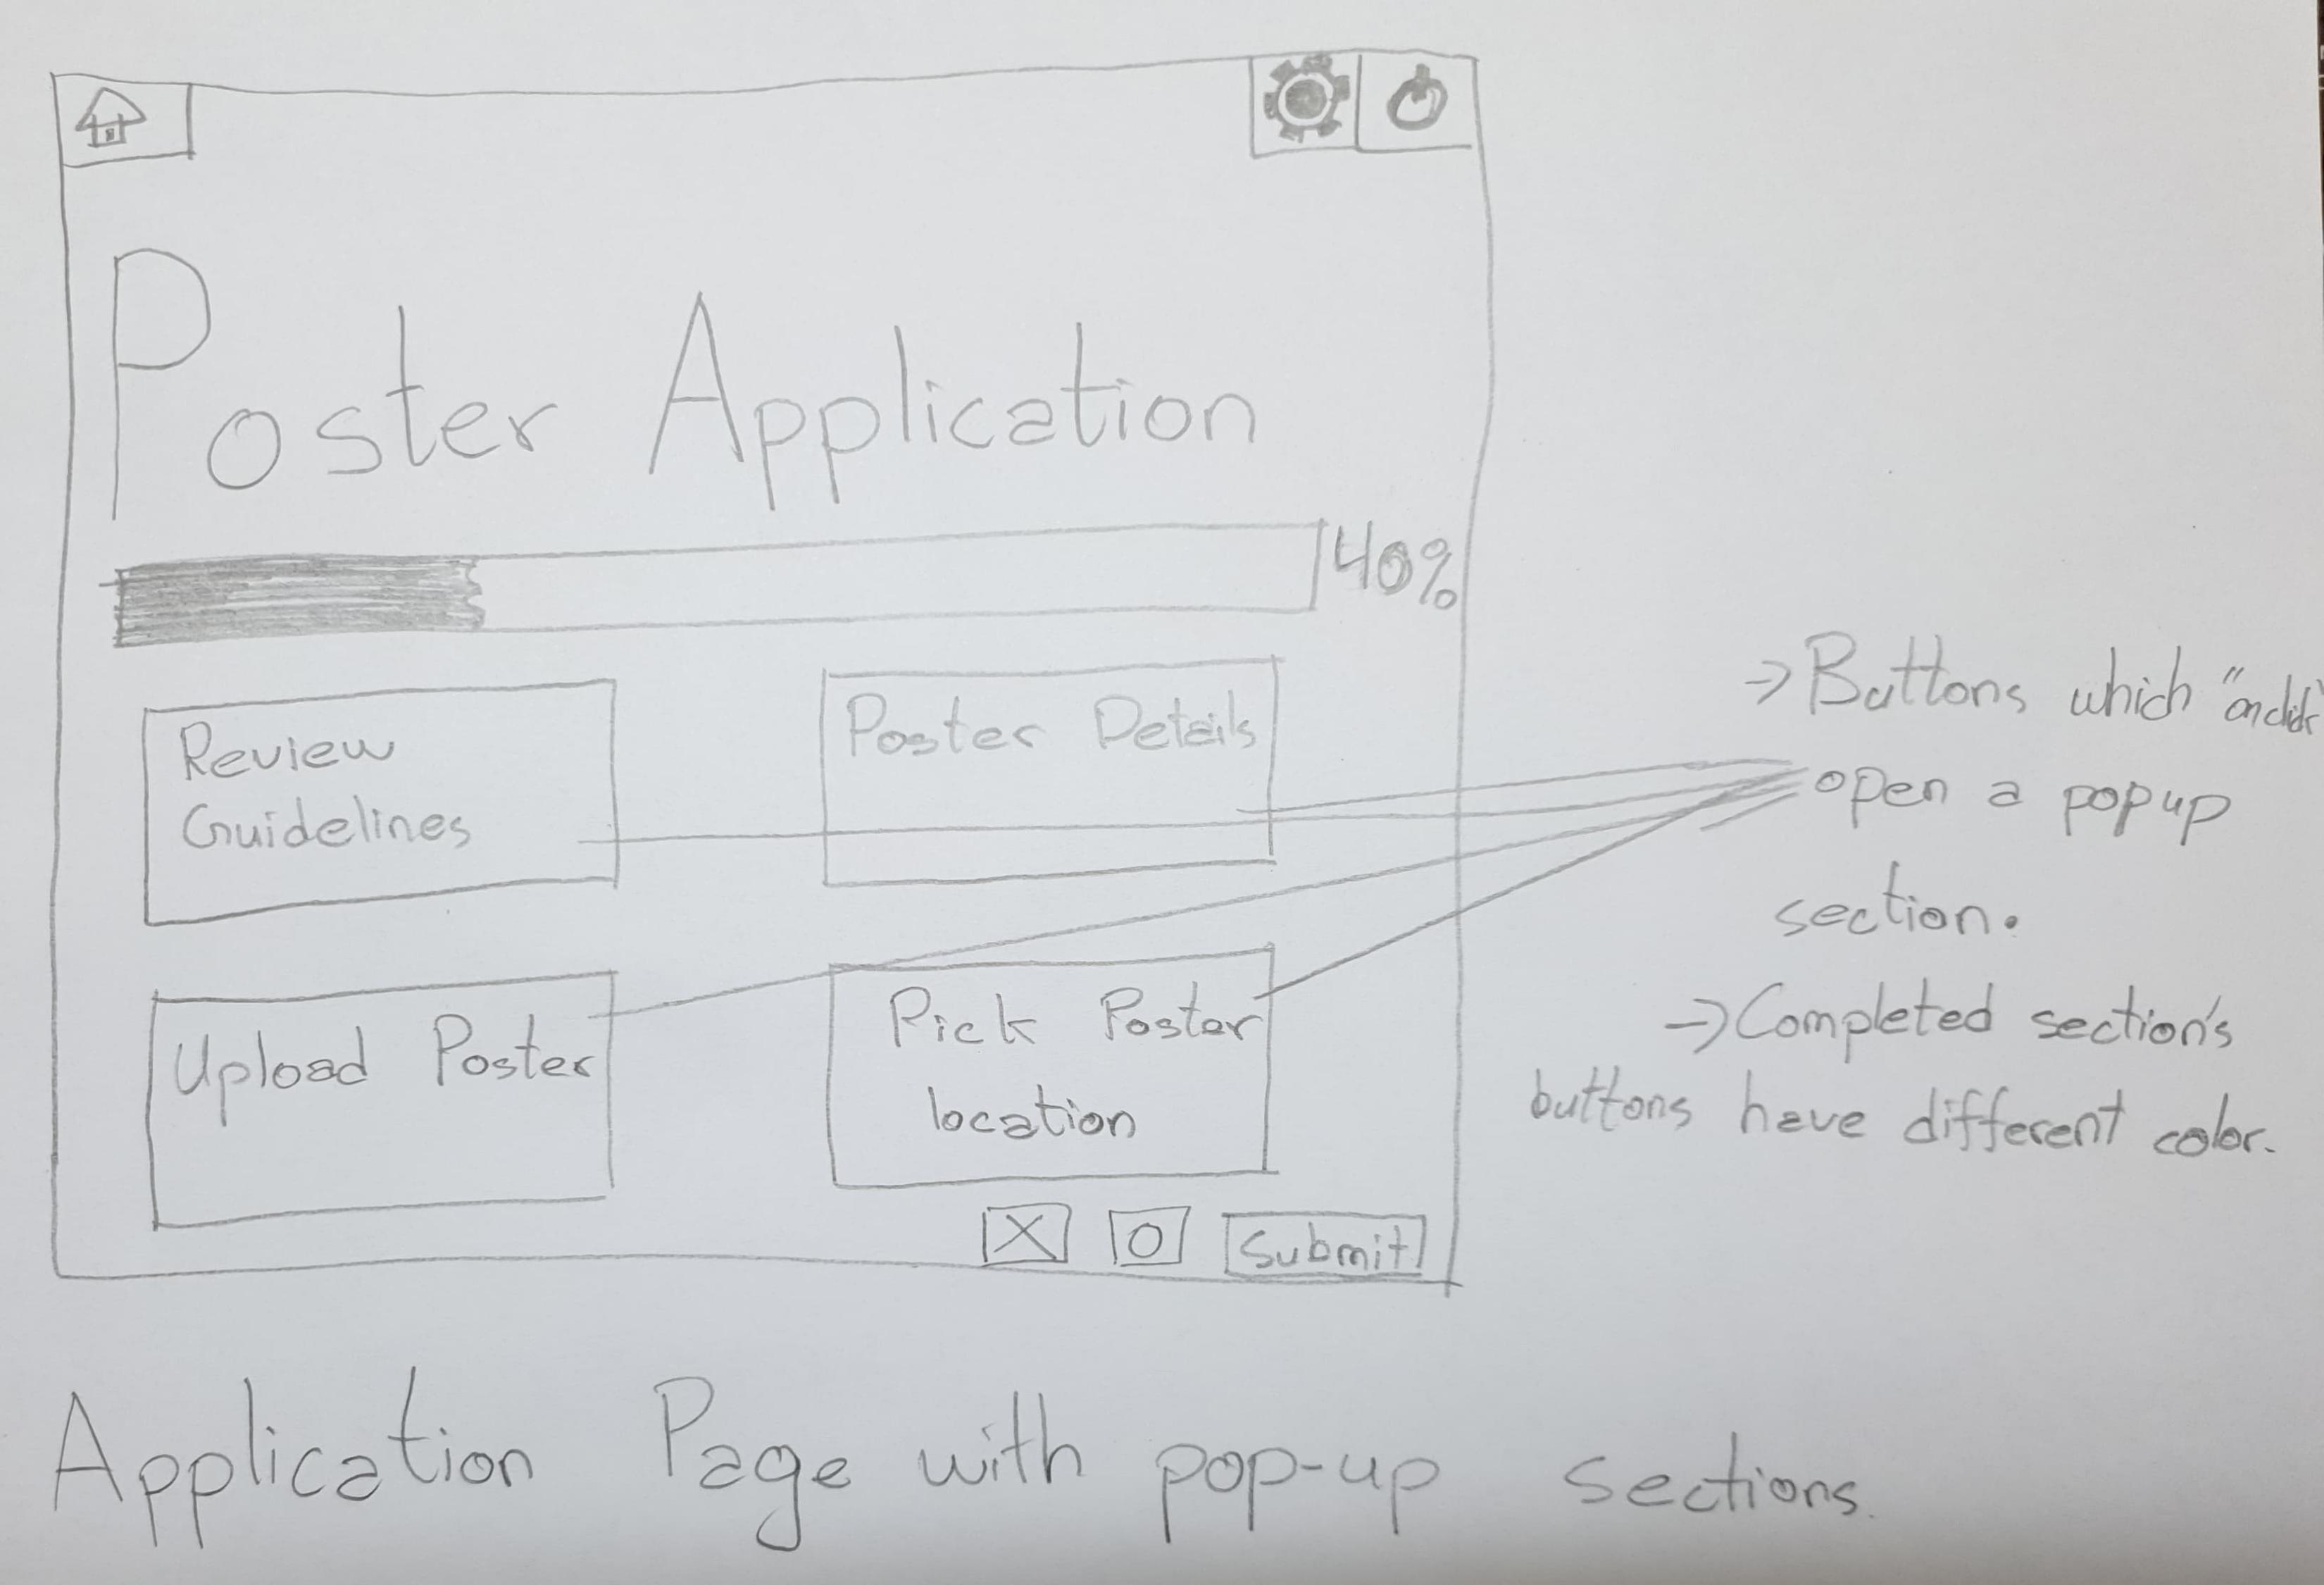 Poster Application
40%
Review
Guidelines
Poster Details
Upload Poster
Pick Poster
location
X O Submit
→ Buttons which "onclick"
open a popup
section.
→ Completed section's
buttons have different color.
Application Page with pop-up sections.